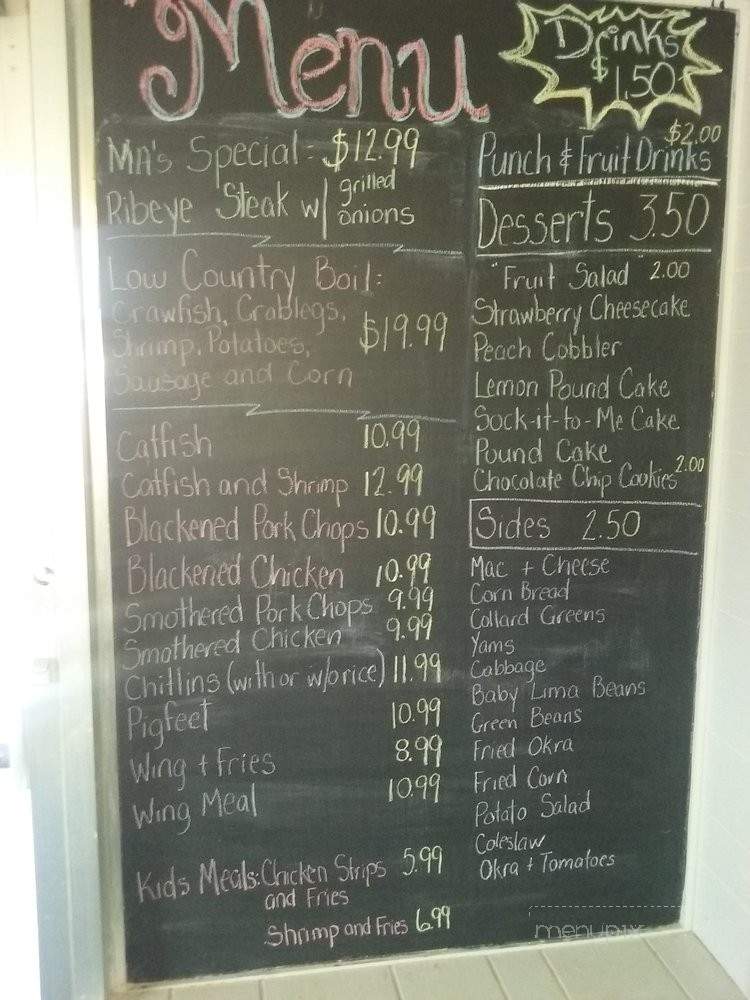 Menu
Ma's Special: $12.99
Ribeye Steak w/ grilled
onions
Low Country Boil:
Crawfish, Crablegs,
Shrimp, Potatoes, $19.99
Sausage and Corn
Catfish 10.99
Catfish and Shrimp 12.99
Blackened Pork Chops 10.99
Blackened Chicken 10.99
Smothered Pork Chops 9.99
Smothered Chicken 9.99
Chitlins (with or w/o rice) 11.99
Pigfeet 10.99
Wing + Fries 8.99
Wing Meal 10.99
Kids Meals: Chicken Strips 5.99
and Fries
Shrimp and Fries 6.99
Drinks
$1.50
$2.00
Punch & Fruit Drinks
Desserts 3.50
"Fruit Salad" 2.00
Strawberry Cheesecake
Peach Cobbler
Lemon Pound Cake
Sock-it-to-Me Cake
Pound Cake
Chocolate Chip Cookies 2.00
Sides 2.50
Mac + Cheese
Corn Bread
Collard Greens
Yams
Cabbage
Baby Lima Beans
Green Beans
Fried Okra
Fried Corn
Potato Salad
Coleslaw
Okra + Tomatoes
menupix